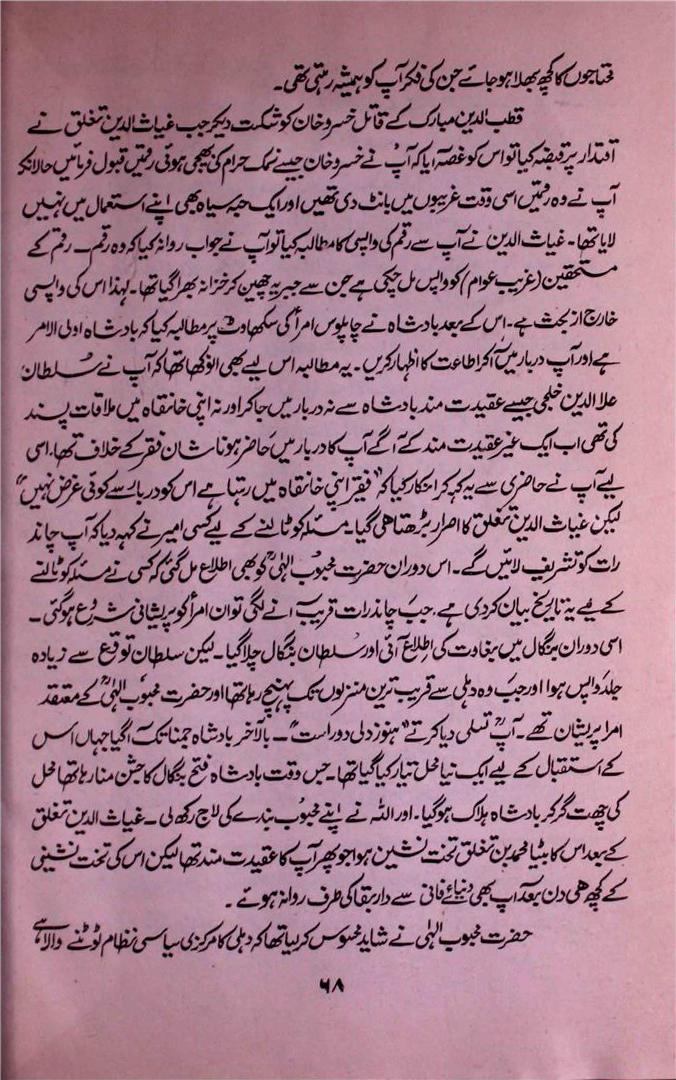 محتاجوں کا کچھ بھلا ہو جائے جن کی فکر آپ کو ہمیشہ رہتی تھی۔
قطب الدین مبارک کے قاتل خسرو خان کو شکست دیکر جب غیاث الدین تغلق نے
اقتدار پر قبضہ کیا تو اس کو غصہ آیا کہ آپؒ نے خسرو خان جیسے نمک حرام کی بھیجی ہوئی رقمیں قبول فرمائیں حالانکہ
آپ نے وہ رقمیں اسی وقت غریبوں میں بانٹ دی تھیں اور ایک حبہ سیاہ بھی اپنے استعمال میں نہیں
لایا تھا۔ غیاث الدین نے آپ سے رقم کی واپسی کا مطالبہ کیا تو آپ نے جواب روانہ کیا کہ وہ رقم ۔ رقم کے
مستحقین (غریب عوام) کو واپس مل چکی ہے جن سے جبریہ چھین کر خزانہ بھرا گیا تھا۔ لہذا اس کی واپسی
خارج از بحث ہے۔ اس کے بعد بادشاہ نے چاپلوس امرأ کی سکھاوٹ پر مطالبہ کیا کہ بادشاہ اولی الامر
ہے اور آپ دربار میں آ کر اطاعت کا اظہار کریں۔ یہ مطالبہ اس لیے بھی انوکھا تھا کہ آپ نے سُلطان
علا الدین خلجی جیسے عقیدت مند بادشاہ سے نہ دربار میں جا کر اور نہ اپنی خانقاہ میں ملاقات پسند
کی تھی اب ایک غیر عقیدت مند کے آگے آپ کا دربار میں حاضر ہونا شان فقر کے خلاف تھا۔ اسی
لیے آپ نے حاضری سے یہ کہہ کر انکار کیا کہ "فقیر اپنی خانقاہ میں رہتا ہے اس کو دربار سے کوئی غرض نہیں"
لیکن غیاث الدین تغلق کا اصرار بڑھتا ہی گیا۔ مسئلہ کو ٹالنے کے لیے کسی امیر نے کہہ دیا کہ آپ چاند
رات کو تشریف لائیں گے۔ اس دوران حضرت محبوب الہٰیؒ کو بھی اطلاع مل گئی کہ کسی نے مسئلہ کو ٹالنے
کے لیے یہ تاریخ بیان کر دی ہے۔ جب چاند رات قریب آنے لگی تو ان امرأ کو پریشانی شروع ہو گئی۔
اسی دوران بنگال میں بغاوت کی اطلاع آئی اور سُلطان بنگال چلا گیا۔ لیکن سلطان توقع سے زیادہ
جلد واپس ہوا اور جب وہ دہلی سے قریب ترین منزلوں تک پہنچ رہا تھا اور حضرت محبوب الہٰیؒ کے معتقد
امرا پریشان تھے۔ آپؒ تسلی دیا کرتے "ہنوز دلی دور است"۔ بالآخر بادشاہ جمنا تک آ گیا جہاں اس
کے استقبال کے لیے ایک نیا محل تیار کیا گیا تھا۔ جس وقت بادشاہ فتح بنگال کا جشن منا رہا تھا محل
کی چھت گر کر بادشاہ ہلاک ہو گیا۔ اور اللہ نے اپنے محبوب بندے کی لاج رکھ لی۔ غیاث الدین تغلق
کے بعد اس کا بیٹا محمد بن تغلق تخت نشین ہوا جو پھر آپ کا عقیدت مند تھا لیکن اس کی تخت نشینی
کے کچھ ہی دن بعد آپ بھی دنیائے فانی سے دار بقا کی طرف روانہ ہوئے۔
حضرت محبوب الہٰی نے شاید محسوس کر لیا تھا کہ دہلی کا مرکزی سیاسی نظام ٹوٹنے والا ہے
۶۸